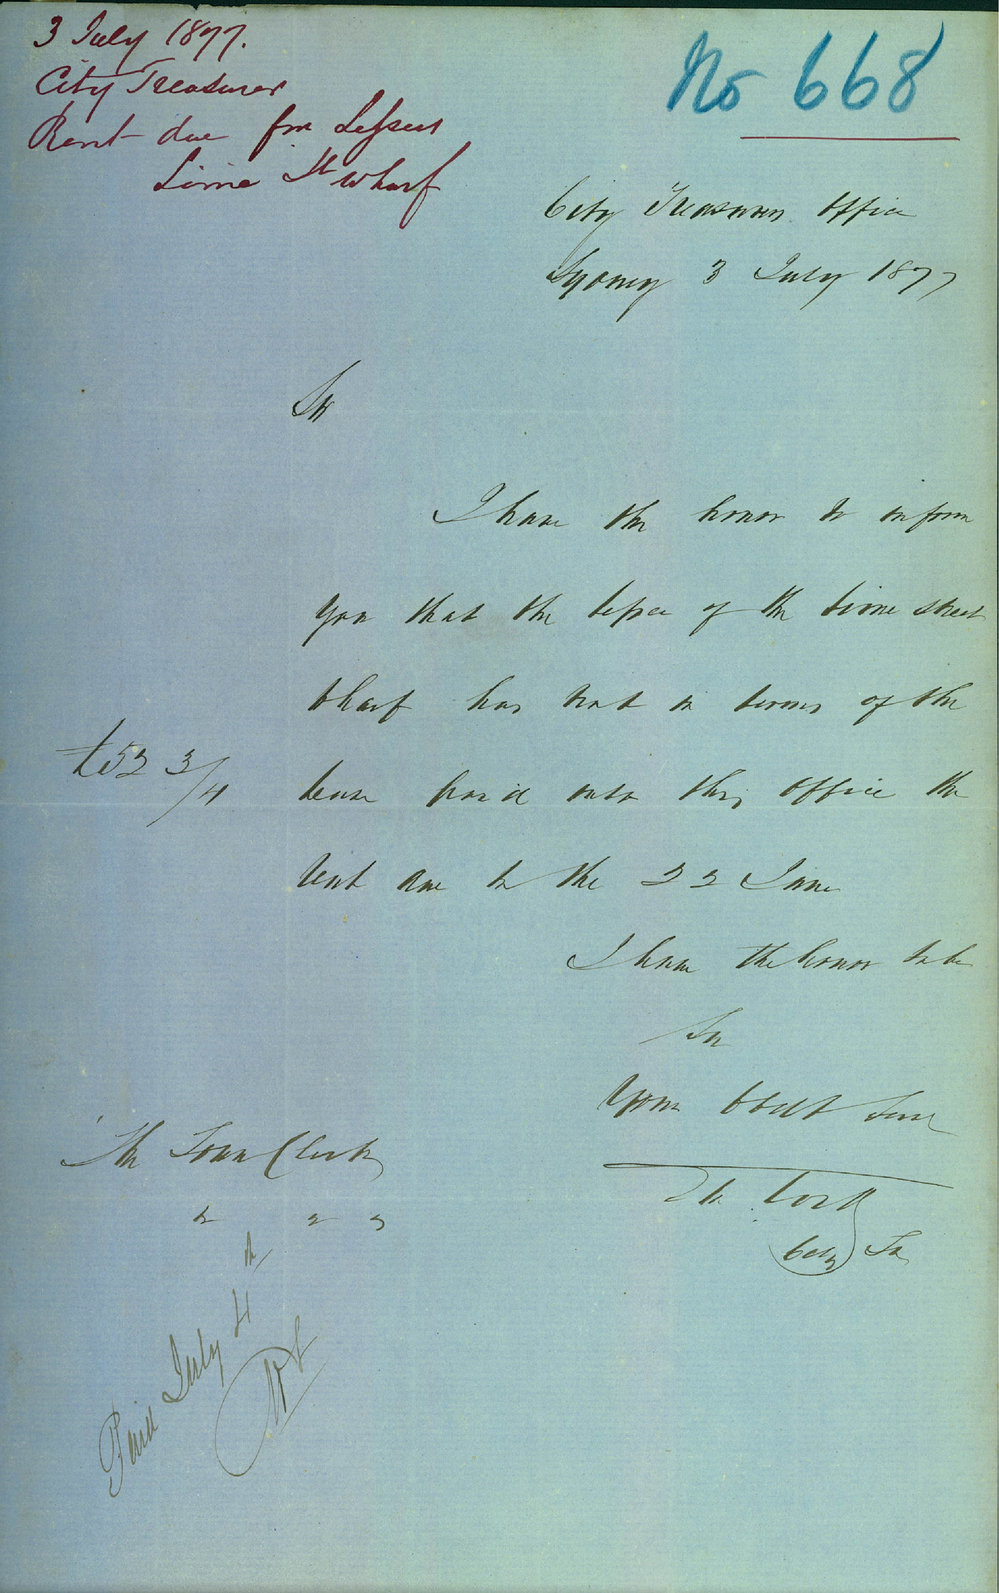 3 July 1877.
City Treasurer
Rent due from Lessee
Lime St Wharf
No 668
City Treasurers Office
Sydney 3 July 1877
Sir
I have the honor to inform
you that the lessee of the Lime Street
Wharf has not in terms of the
£52 3/4
lease paid into this office the
rent due to the 22 June
I have the honor to be
Sir
Your Obedt Serv
The Town Clerk
City Tr
Paid July 4th